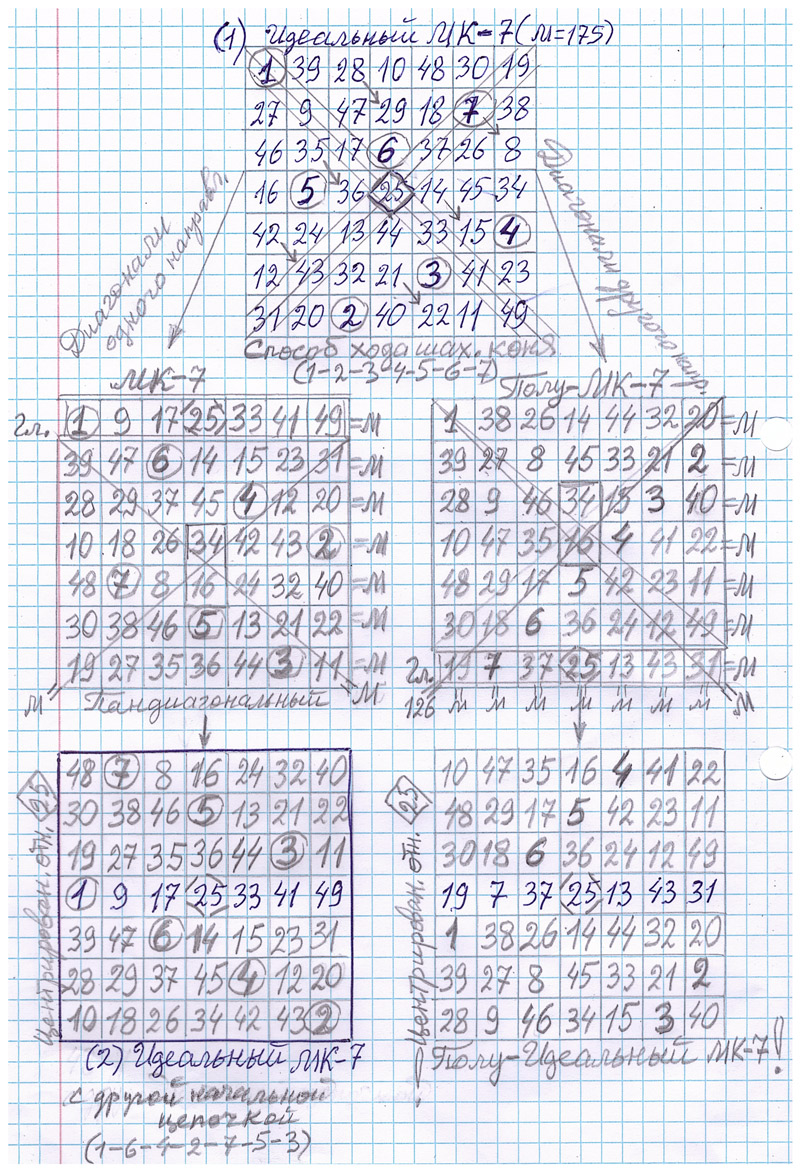 (1) Идеальный МК-7 (М=175)
1 39 28 10 48 30 19
27 9 47 29 18 7 38
46 35 17 6 37 26 8
16 5 36 25 14 45 34
42 24 13 44 33 15 4
12 43 32 21 3 41 23
31 20 2 40 22 11 49
Диагонали
одного направл.
Диагонали другого напр.
Способ хода шах. коня
(1-2-3-4-5-6-7)
МК-7
Гл. 1 9 17 25 33 41 49 =М
39 47 6 14 15 23 31 =М
28 29 37 45 4 12 20 =М
10 18 26 34 42 43 2 =М
48 7 8 16 24 32 40 =М
30 38 46 5 13 21 22 =М
19 27 35 36 44 3 11 =М
М Пандиагональный М
Полу-МК-7
1 38 26 14 44 32 20 =М
39 27 8 45 33 21 2 =М
28 9 46 34 15 3 40 =М
10 47 35 16 4 41 22 =М
48 29 17 5 42 23 11 =М
30 18 6 36 24 12 49 =М
Гл. 19 7 37 25 13 43 31 =М
126 М М М М М М М М
Центрирован. отн. 25
48 7 8 16 24 32 40
30 38 46 5 13 21 22
19 27 35 36 44 3 11
1 9 17 25 33 41 49
39 47 6 14 15 23 31
28 29 37 45 4 12 20
10 18 26 34 42 43 2
(2) Идеальный МК-7
с другой начальной
цепочкой
(1-6-4-2-7-5-3)
Центрирован. отн. 25
10 47 35 16 4 41 22
48 29 17 5 42 23 11
30 18 6 36 24 12 49
19 7 37 25 13 43 31
1 38 26 14 44 32 20
39 27 8 45 33 21 2
28 9 46 34 15 3 40
! Полу-Идеальный МК-7!